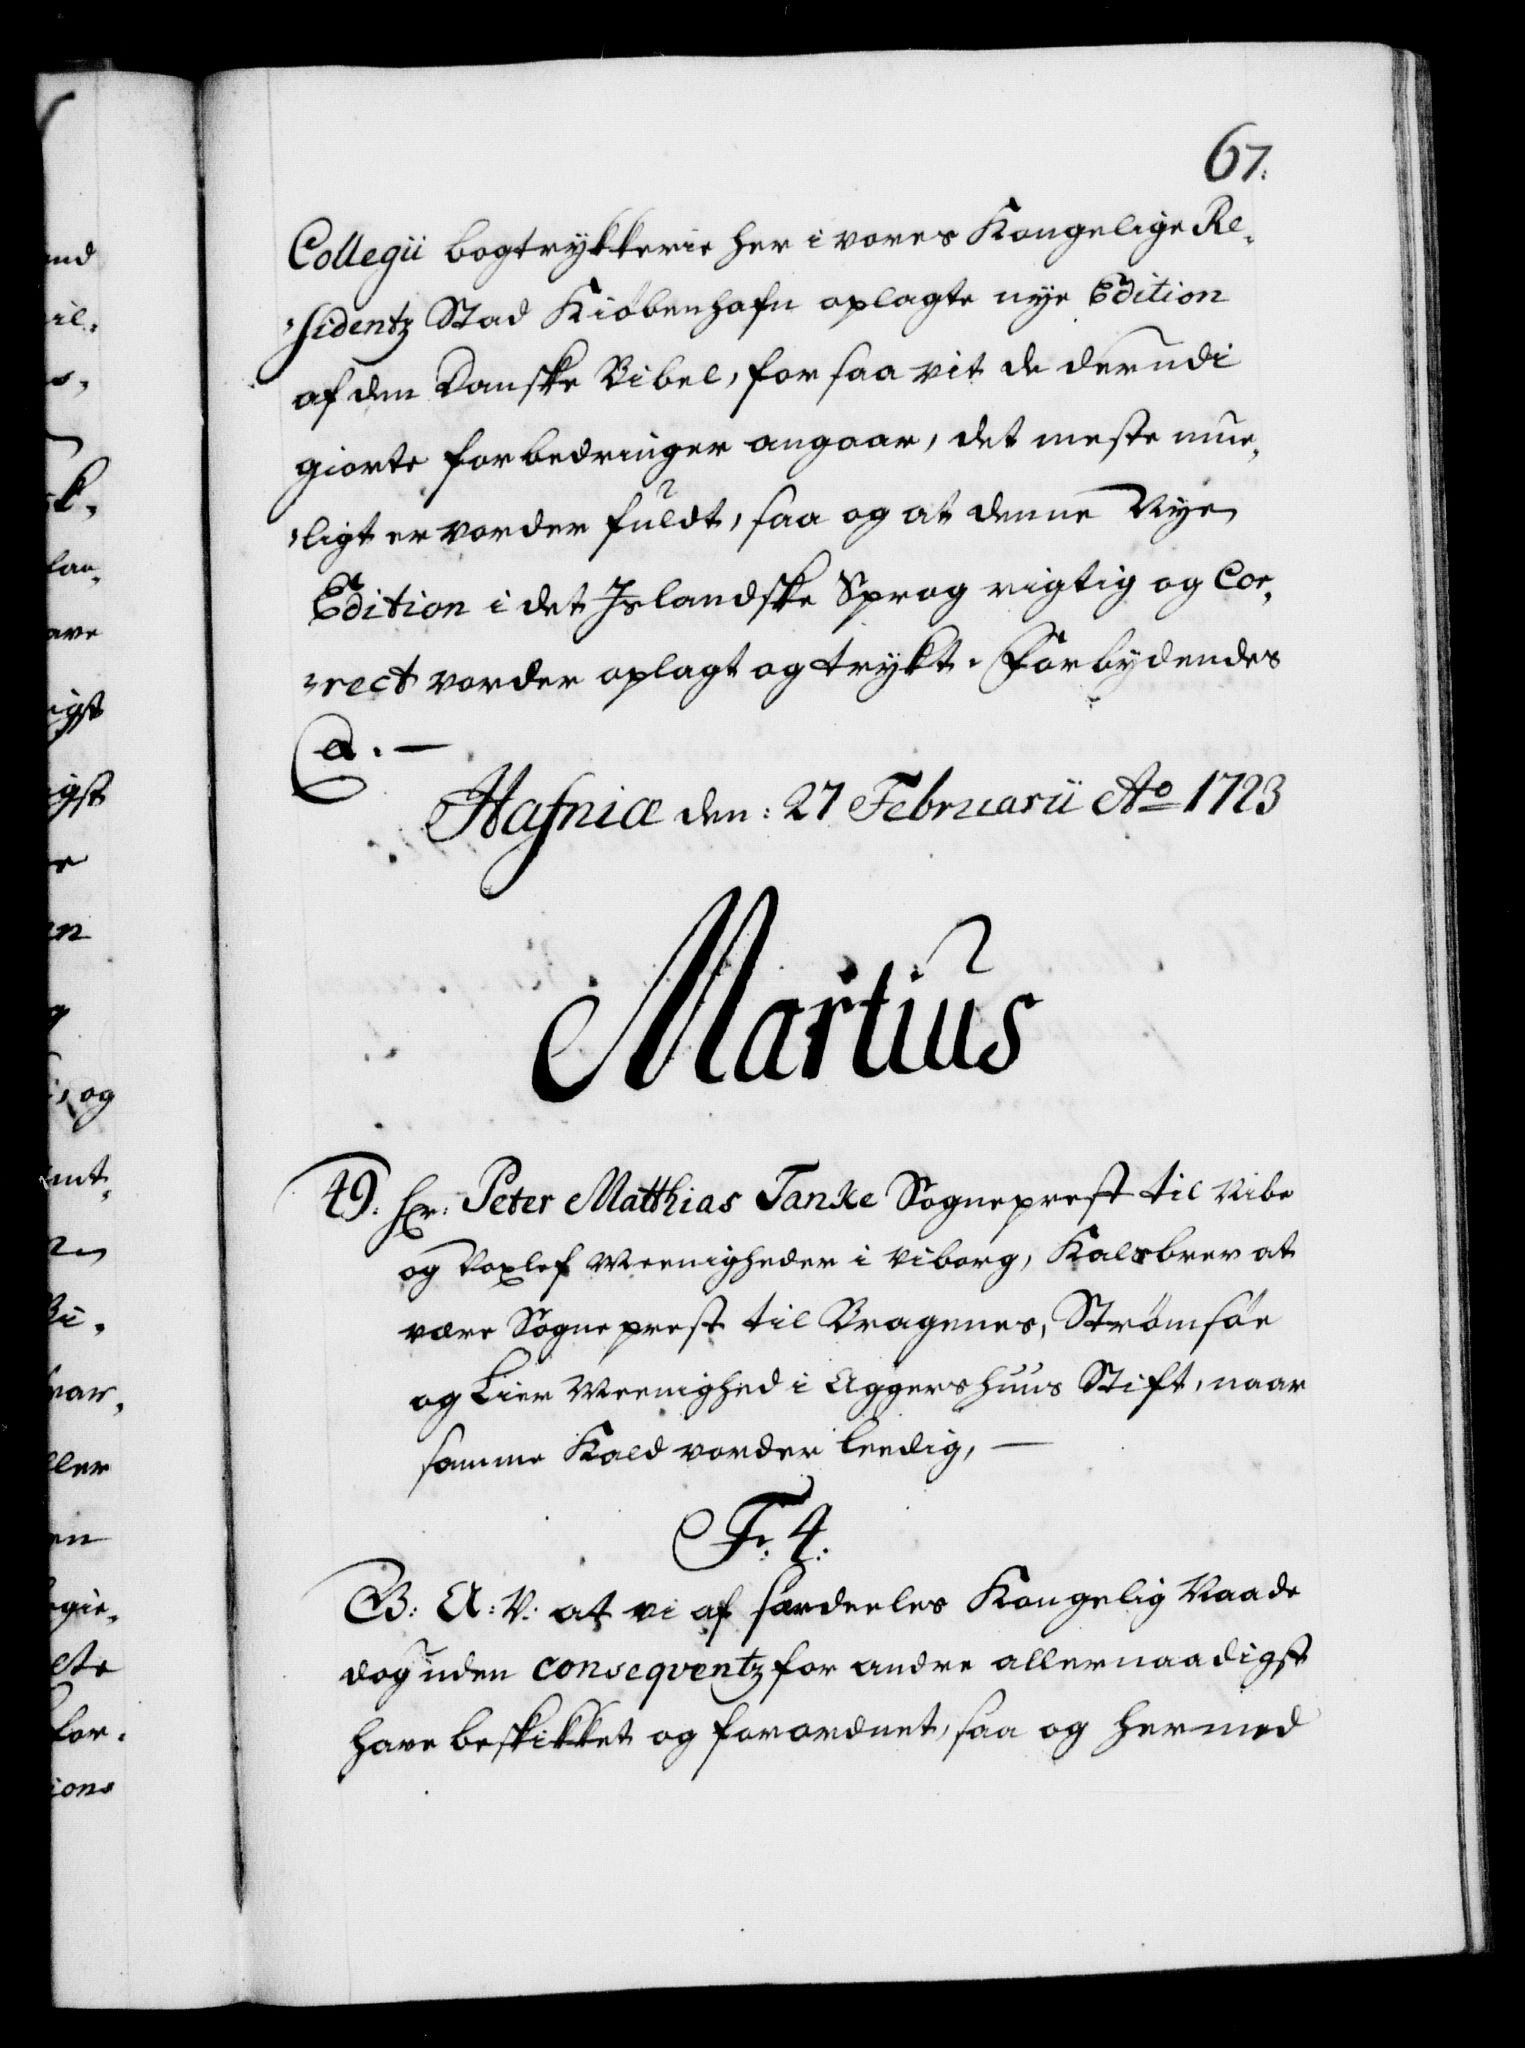 67.
Collegii bogtrykkerie her i vores Kongelige Re-
-sidentz Stad Kiöbenhafn oplagte nye Edition
af den Danske Bibel, for saa vit de derudi
giorte forbedringer angaar, det meste mue-
-ligt er vorder fuldt, saa og at denne Nye
Edition i det Jslandske Sprog rigtig og Cor-
-rect vorder oplagt og trykt. Forbydendes
&. —
Hafniæ den: 27 Februarii Ao 1723
Martius
49. Hr: Peter Matthias Tanke Sogneprest til Vibe
og Menigheder i Viborg, Kalsbrev at
være Sogneprest til Bragenes, Strömsöe
og Lier Meenighed i Aggershuus Stift, naar
samme Kald vorder leedig, —
Fr. 4.
G: A: V: at vi af særdeeles Kongelig Naade
dog uden conseqventz for andre allernaadigst
have beskikket og forordnet, saa og hermed
nd
il-
k-
lan-
ave
igst
igst
en
og
Bi-
var-
ller
en
for-
ions